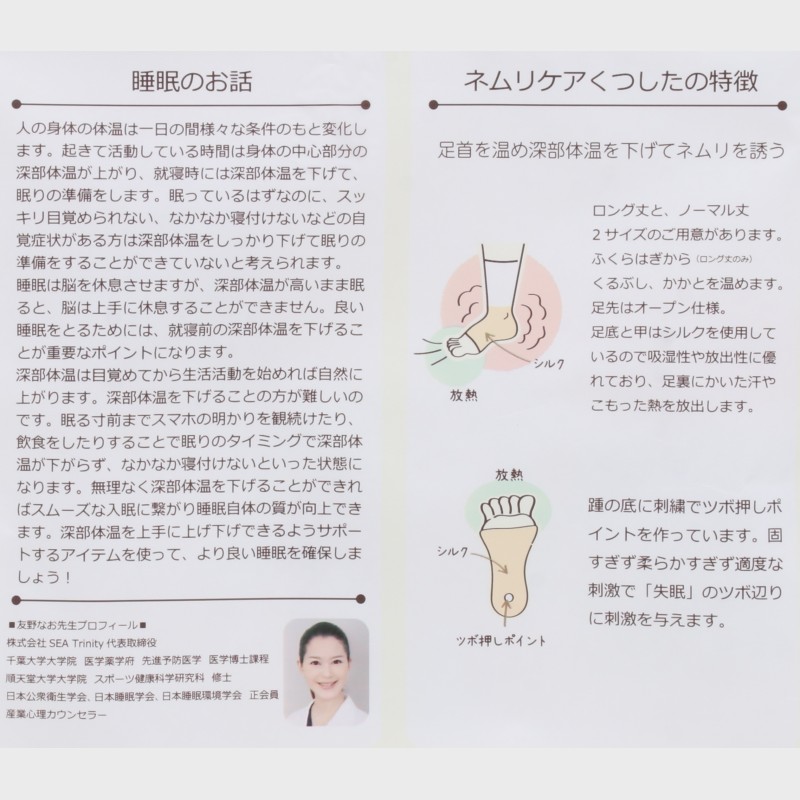 睡眠のお話
人の身体の体温は一日の間様々な条件のもと変化し
ます。起きて活動している時間は身体の中心部分の
深部体温が上がり、就寝時には深部体温を下げて、
眠りの準備をします。眠っているはずなのに、スッ
キリ目覚められない、なかなか寝付けないなどの自
覚症状がある方は深部体温をしっかり下げて眠りの
準備をすることができていないと考えられます。
睡眠は脳を休息させますが、深部体温が高いまま眠
ると、脳は上手に休息することができません。良い
睡眠をとるためには、就寝前の深部体温を下げるこ
とが重要なポイントになります。
深部体温は目覚めてから生活活動を始めれば自然に
上がります。深部体温を下げることの方が難しいの
です。眠る寸前までスマホの明かりを観続けたり、
飲食をしたりすることで眠りのタイミングで深部体
温が下がらず、なかなか寝付けないといった状態に
なります。無理なく深部体温を下げることができれ
ばスムーズな入眠に繋がり睡眠自体の質が向上でき
ます。深部体温を上手に上げ下げできるようサポー
トするアイテムを使って、より良い睡眠を確保しま
しょう！
■友野なお先生プロフィール■
株式会社 SEA Trinity 代表取締役
千葉大学大学院 医学薬学府 先進予防医学 医学博士課程
順天堂大学大学院 スポーツ健康科学研究科 修士
日本公衆衛生学会、日本睡眠学会、日本睡眠環境学会 正会員
産業心理カウンセラー
ネムリケアくつしたの特徴
足首を温め深部体温を下げてネムリを誘う
ロング丈と、ノーマル丈
2サイズのご用意があります。
ふくらはぎから（ロング丈のみ）
くるぶし、かかとを温めます。
足先はオープン仕様。
足底と甲はシルクを使用して
いるので吸湿性や放出性に優
れており、足裏にかいた汗や
こもった熱を放出します。
シルク
放熱
放熱
シルク
ツボ押しポイント
踵の底に刺繍でツボ押しポ
イントを作っています。固
すぎず柔らかすぎず適度な
刺激で「失眠」のツボ辺り
に刺激を与えます。